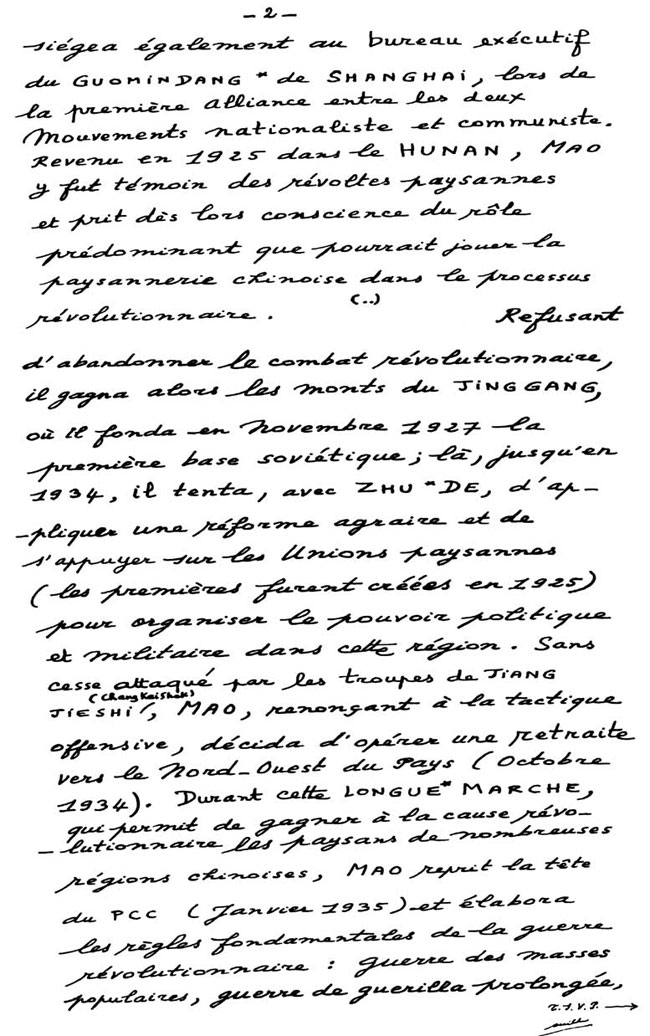 - 2 -
siégea également au bureau exécutif
du GUOMINDANG * de SHANGHAI, lors de
la première alliance entre les deux
Mouvements nationaliste et communiste.
Revenu en 1925 dans le HUNAN, MAO
y fut témoin des révoltes paysannes
et prit dès lors conscience du rôle
prédominant que pourrait jouer la
paysannerie chinoise dans le processus
révolutionnaire. (..) Refusant
d'abandonner le combat révolutionnaire,
il gagna alors les monts du JINGGANG,
où il fonda en Novembre 1927 la
première base soviétique ; là, jusqu'en
1934, il tenta, avec ZHU * DE, d'ap-
-pliquer une réforme agraire et de
s'appuyer sur les Unions paysannes
(les premières furent créées en 1925)
pour organiser le pouvoir politique
et militaire dans cette région. Sans
cesse attaqué par les troupes de JIANG
(Chang Kai Shek)
JIESHI, MAO, renonçant à la tactique
offensive, décida d'opérer une retraite
vers le Nord-Ouest du Pays (Octobre
1934). Durant cette LONGUE * MARCHE,
qui permit de gagner à la cause révo-
-lutionnaire les paysans de nombreuses
régions chinoises, MAO reprit la tête
du PCC (Janvier 1935) et élabora
les règles fondamentales de la guerre
révolutionnaire : guerre des masses
populaires, guerre de guerilla prolongée,